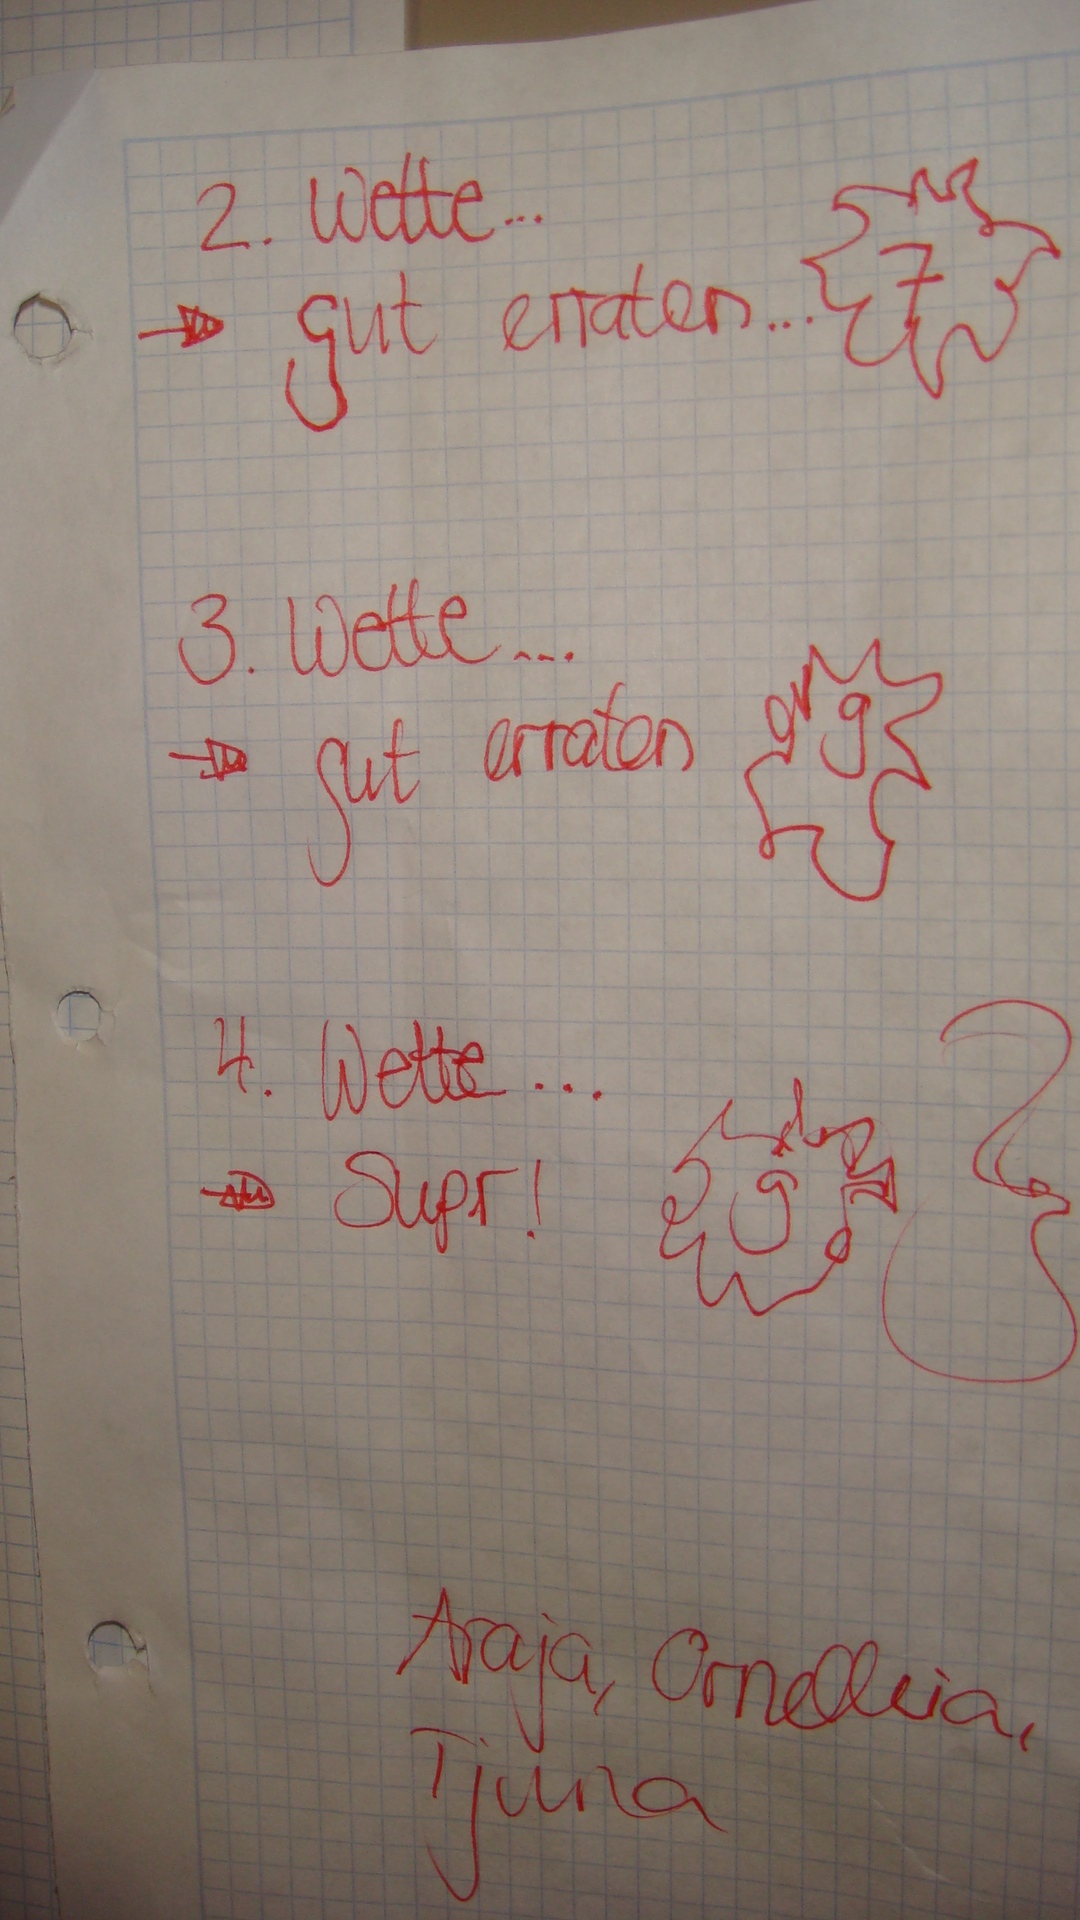 2. Wette...
→ gut erraten... 7
3. Wette...
→ gut erraten 9
4. Wette...
→ Supr! 9
Araja, Ornelleia,
Tjuina